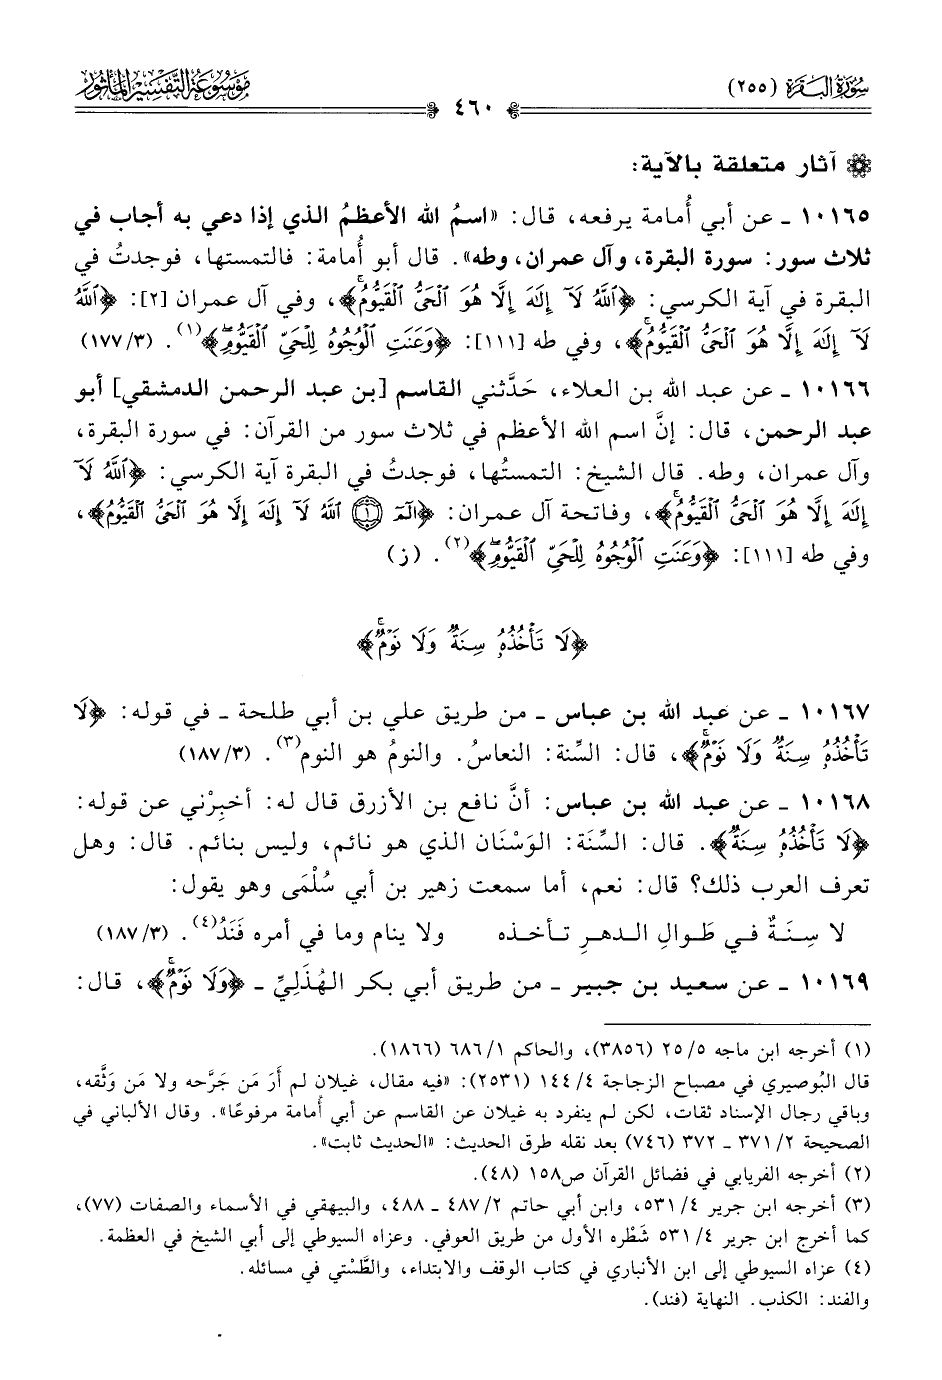 سُورَةُ البَقَرَة (٢٥٥)
٤٦٠
مَوْسُوعَة التَّفْسِيْر المَأْثُور
آثار متعلقة بالآية:
١٠١٦٥ ـ عن أبي أُمامة يرفعه، قال: «اسمُ الله الأعظمُ الذي إذا دعي به أجاب في
ثلاث سور: سورة البقرة، وآل عمران، وطه». قال أبو أُمامة: فالتمستها، فوجدتُ في
البقرة في آية الكرسي: ﴿ٱللَّهُ لَآ إِلَٰهَ إِلَّا هُوَ ٱلْحَىُّ ٱلْقَيُّومُۚ﴾، وفي آل عمران [٢]: ﴿ٱللَّهُ
لَآ إِلَٰهَ إِلَّا هُوَ ٱلْحَىُّ ٱلْقَيُّومُۚ﴾، وفي طه [١١١]: ﴿وَعَنَتِ ٱلْوُجُوهُ لِلْحَىِّ ٱلْقَيُّومِۖ﴾(١). (٣/ ١٧٧)
١٠١٦٦ ـ عن عبد الله بن العلاء، حَدَّثني القاسم [بن عبد الرحمن الدمشقي] أبو
عبد الرحمن، قال: إنَّ اسم الله الأعظم في ثلاث سور من القرآن: في سورة البقرة،
وآل عمران، وطه. قال الشيخ: التمستُها، فوجدتُ في البقرة آية الكرسي: ﴿ٱللَّهُ لَآ
إِلَٰهَ إِلَّا هُوَ ٱلْحَىُّ ٱلْقَيُّومُۚ﴾، وفاتحة آل عمران: ﴿الٓمٓ ۝١ ٱللَّهُ لَآ إِلَٰهَ إِلَّا هُوَ ٱلْحَىُّ ٱلْقَيُّومُ﴾،
وفي طه [١١١]: ﴿وَعَنَتِ ٱلْوُجُوهُ لِلْحَىِّ ٱلْقَيُّومِۖ﴾(٢). (ز)
﴿لَا تَأْخُذُهُۥ سِنَةٌ وَلَا نَوْمٌۚ﴾
١٠١٦٧ ـ عن عبد الله بن عباس ـ من طريق علي بن أبي طلحة ـ في قوله: ﴿لَا
تَأْخُذُهُۥ سِنَةٌ وَلَا نَوْمٌۚ﴾، قال: السِّنة: النعاسُ. والنومُ هو النوم(٣). (٣/ ١٨٧)
١٠١٦٨ ـ عن عبد الله بن عباس: أنَّ نافع بن الأزرق قال له: أخبِرْني عن قوله:
﴿لَا تَأْخُذُهُۥ سِنَةٌ﴾. قال: السِّنَة: الوَسْنَان الذي هو نائم، وليس بنائم. قال: وهل
تعرف العرب ذلك؟ قال: نعم، أما سمعت زهير بن أبي سُلْمَى وهو يقول:
لا سِـنَـةٌ فـي طَـوالِ الـدهـرِ تـأخـذه ولا ينام وما في أمره فَنَدُ(٤). (٣/ ١٨٧)
١٠١٦٩ ـ عن سعيد بن جبير ـ من طريق أبي بكر الهُذَلِيِّ ـ ﴿وَلَا نَوْمٌۚ﴾، قال:
(١) أخرجه ابن ماجه ٥/ ٢٥ (٣٨٥٦)، والحاكم ١/ ٦٨٦ (١٨٦٦).
قال البُوصيري في مصباح الزجاجة ٤/ ١٤٤ (٢٥٣١): «فيه مقال، غيلان لم أَرَ مَن جَرَّحه ولا مَن وَثَّقه،
وباقي رجال الإسناد ثقات، لكن لم ينفرد به غيلان عن القاسم عن أبي أُمامة مرفوعًا». وقال الألباني في
الصحيحة ٢/ ٣٧١ ـ ٣٧٢ (٧٤٦) بعد نقله طرق الحديث: «الحديث ثابت».
(٢) أخرجه الفريابي في فضائل القرآن ص١٥٨ (٤٨).
(٣) أخرجه ابن جرير ٤/ ٥٣١، وابن أبي حاتم ٢/ ٤٨٧ ـ ٤٨٨، والبيهقي في الأسماء والصفات (٧٧)،
كما أخرج ابن جرير ٤/ ٥٣١ شَطْره الأول من طريق العوفي. وعزاه السيوطي إلى أبي الشيخ في العظمة.
(٤) عزاه السيوطي إلى ابن الأنباري في كتاب الوقف والابتداء، والطَّسْتي في مسائله.
والفند: الكذب. النهاية (فند).